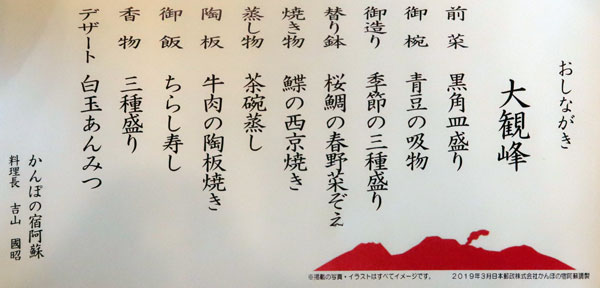 おしながき
大観峰
前菜 黒角皿盛り
御椀 青豆の吸物
御造り 季節の三種盛り
替り鉢 桜鯛の春野菜ぞえ
焼き物 鰈の西京焼き
蒸し物 茶碗蒸し
陶板 牛肉の陶板焼き
御飯 ちらし寿し
香物 三種盛り
デザート 白玉あんみつ
かんぽの宿阿蘇
料理長 吉山 國昭
※掲載の写真・イラストはすべてイメージです。 2019年3月日本郵政株式会社かんぽの宿阿蘇調製